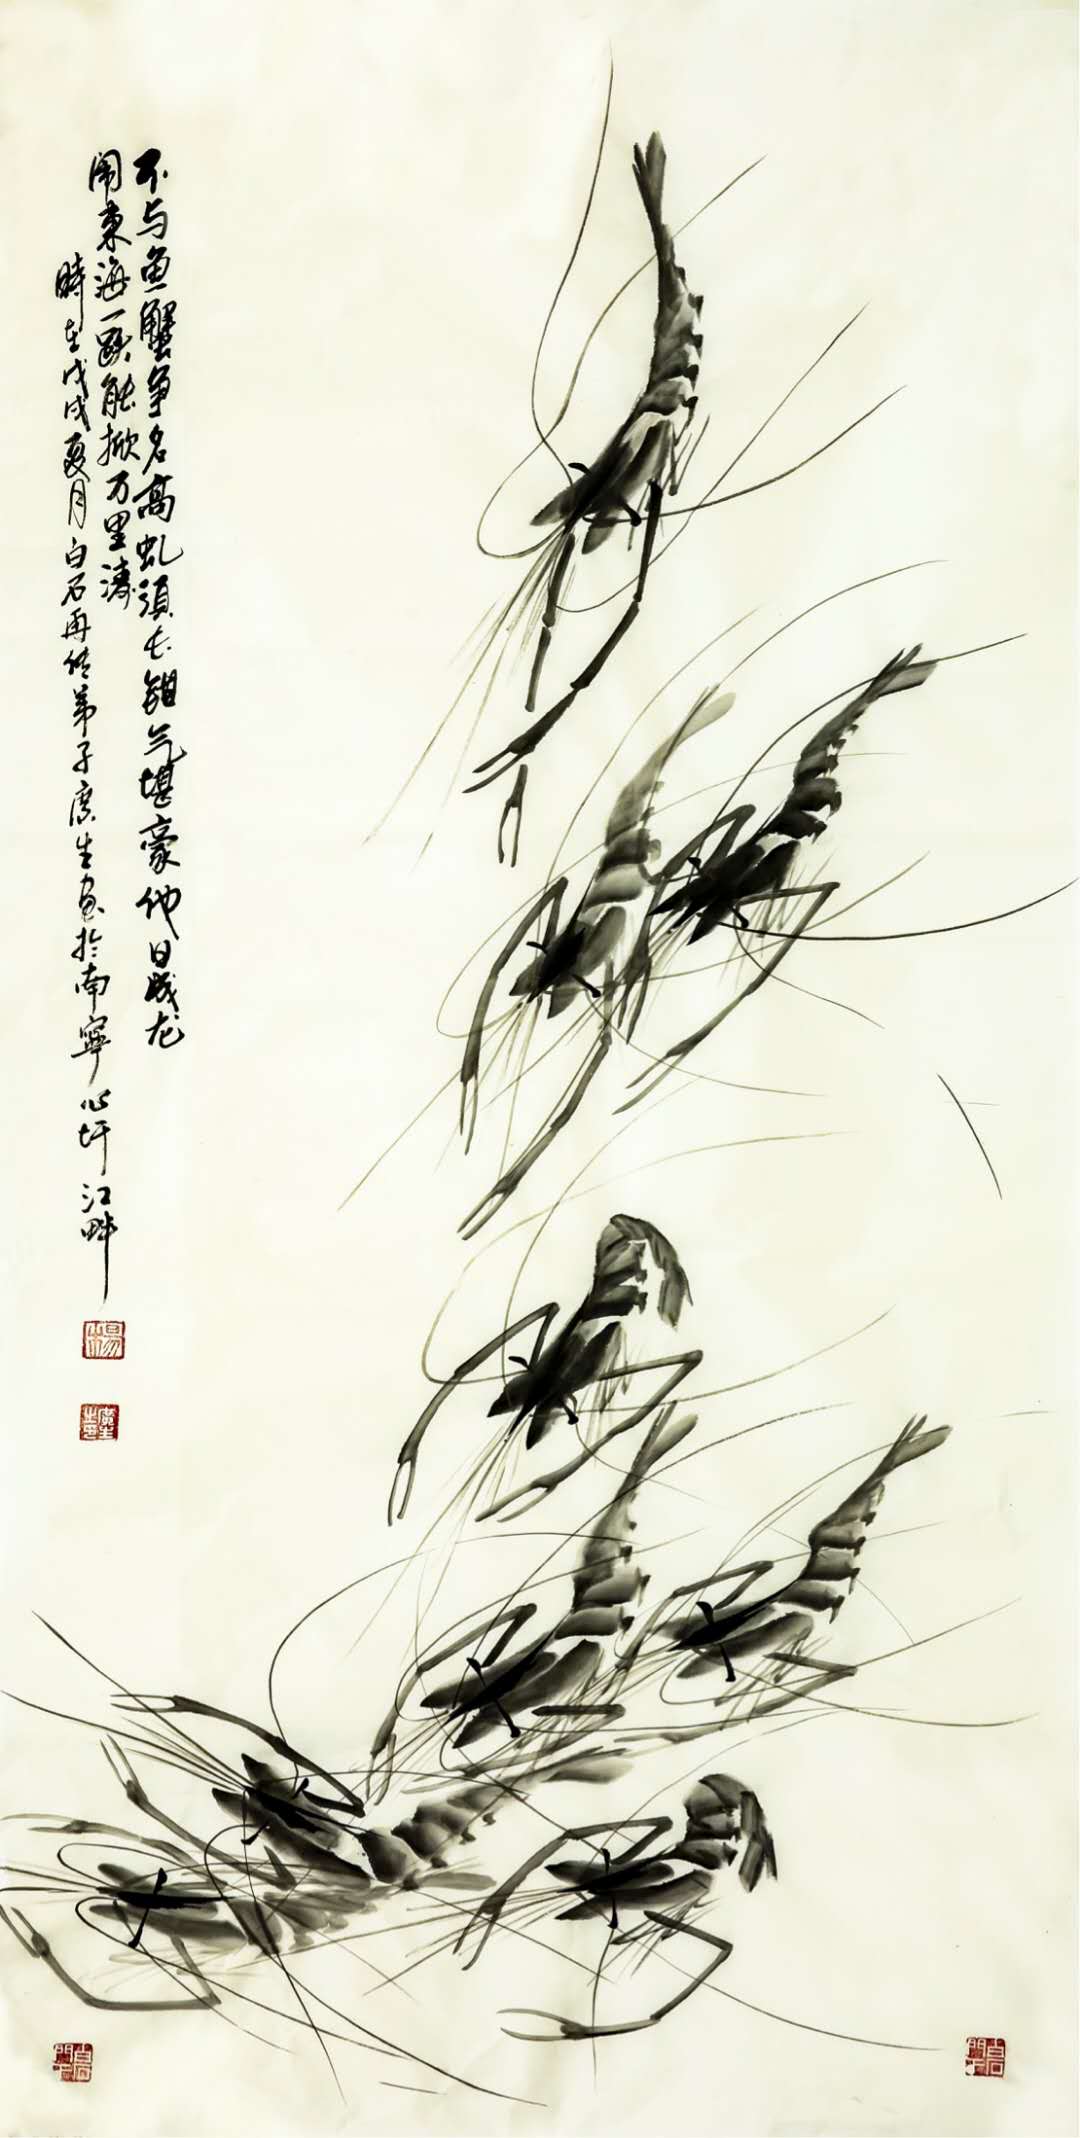 不与鱼蟹争名高虬须长钳气堪豪他日成龙
闹东海一跃能掀万里涛
時在戊戌夏月白石再传弟子广生画於南寧心圩江畔
杨
廣生